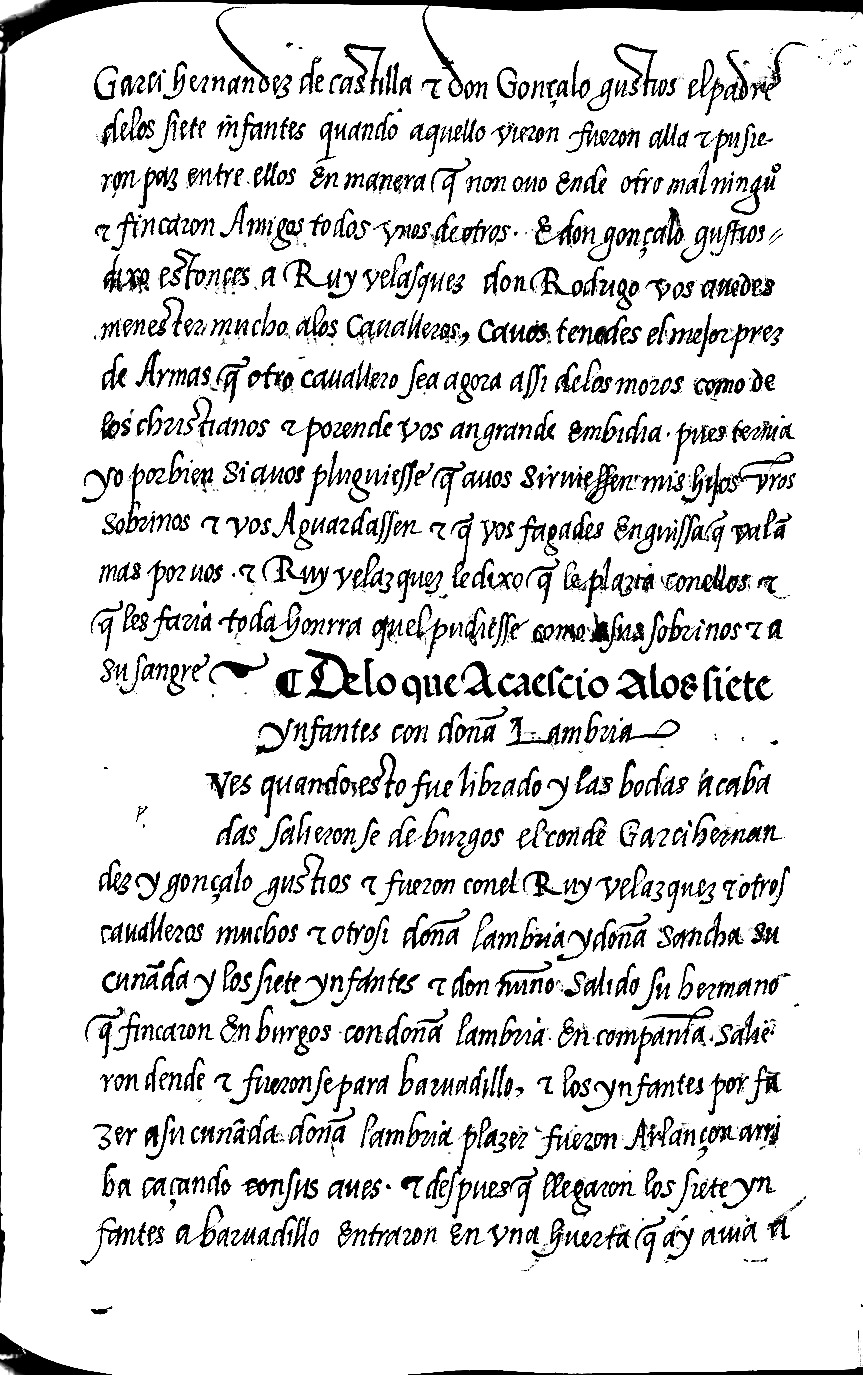 Garci hernandez de castilla τ don Gonçalo gustios el padre
delos siete infantes quando aquello vieron fueron alla τ pusie-
ron paz entre ellos En manera q̃ non ouo Ende otro mal ningu͂o
τ fincaron Amigos todos vnos de otros. E don gonçalo gustios
dixo estonçes a Ruy velasquez don Rodrigo vos auedes
menester mucho alos Cavalleros, Ca vos tenedes el mejor prez
de Armas q̃ otro cavallero sea agora assi delos moros como de
los christianos τ porende vos an grande Embidia. pues ternia
yo por bien Si a uos pluguiesse q̃ auos Sirviessen mis hijos vr̃os
Sobrinos τ vos Aguardassen τ q̃ vos fagades En guissa q̃ valã
mas por uos. τ Ruy velazquez le dixo q̃ le plazia conellos τ
q̃ les faria toda honrra quel pudiesse como a sus sobrinos τ a
su sangre
¶ De lo que Acaescio Alos siete
Ynfantes con doña Lambria
Ves quando esto fue librado y las bodas acaba
das salieron se de burgos el conde Garci hernan
dez y gonçalo gustios τ fueron conel Ruy velazquez τ otros
cavalleros muchos τ otrosi doña lambria y doña Sancha su
cuñada y los siete ynfantes τ don nuño Salido su hermano
q̃ fincaron En burgos con doña lambria En compañia. Salie
ron dende τ fueron se para barvadillo, τ los ynfantes por fa
zer a su cuñada doña lambria plazer fueron Arlançon arri
ba caçando con sus aves. τ despues q̃ llegaron los siete yn
fantes a barvadillo Entraron En vna huerta q̃ ay avia